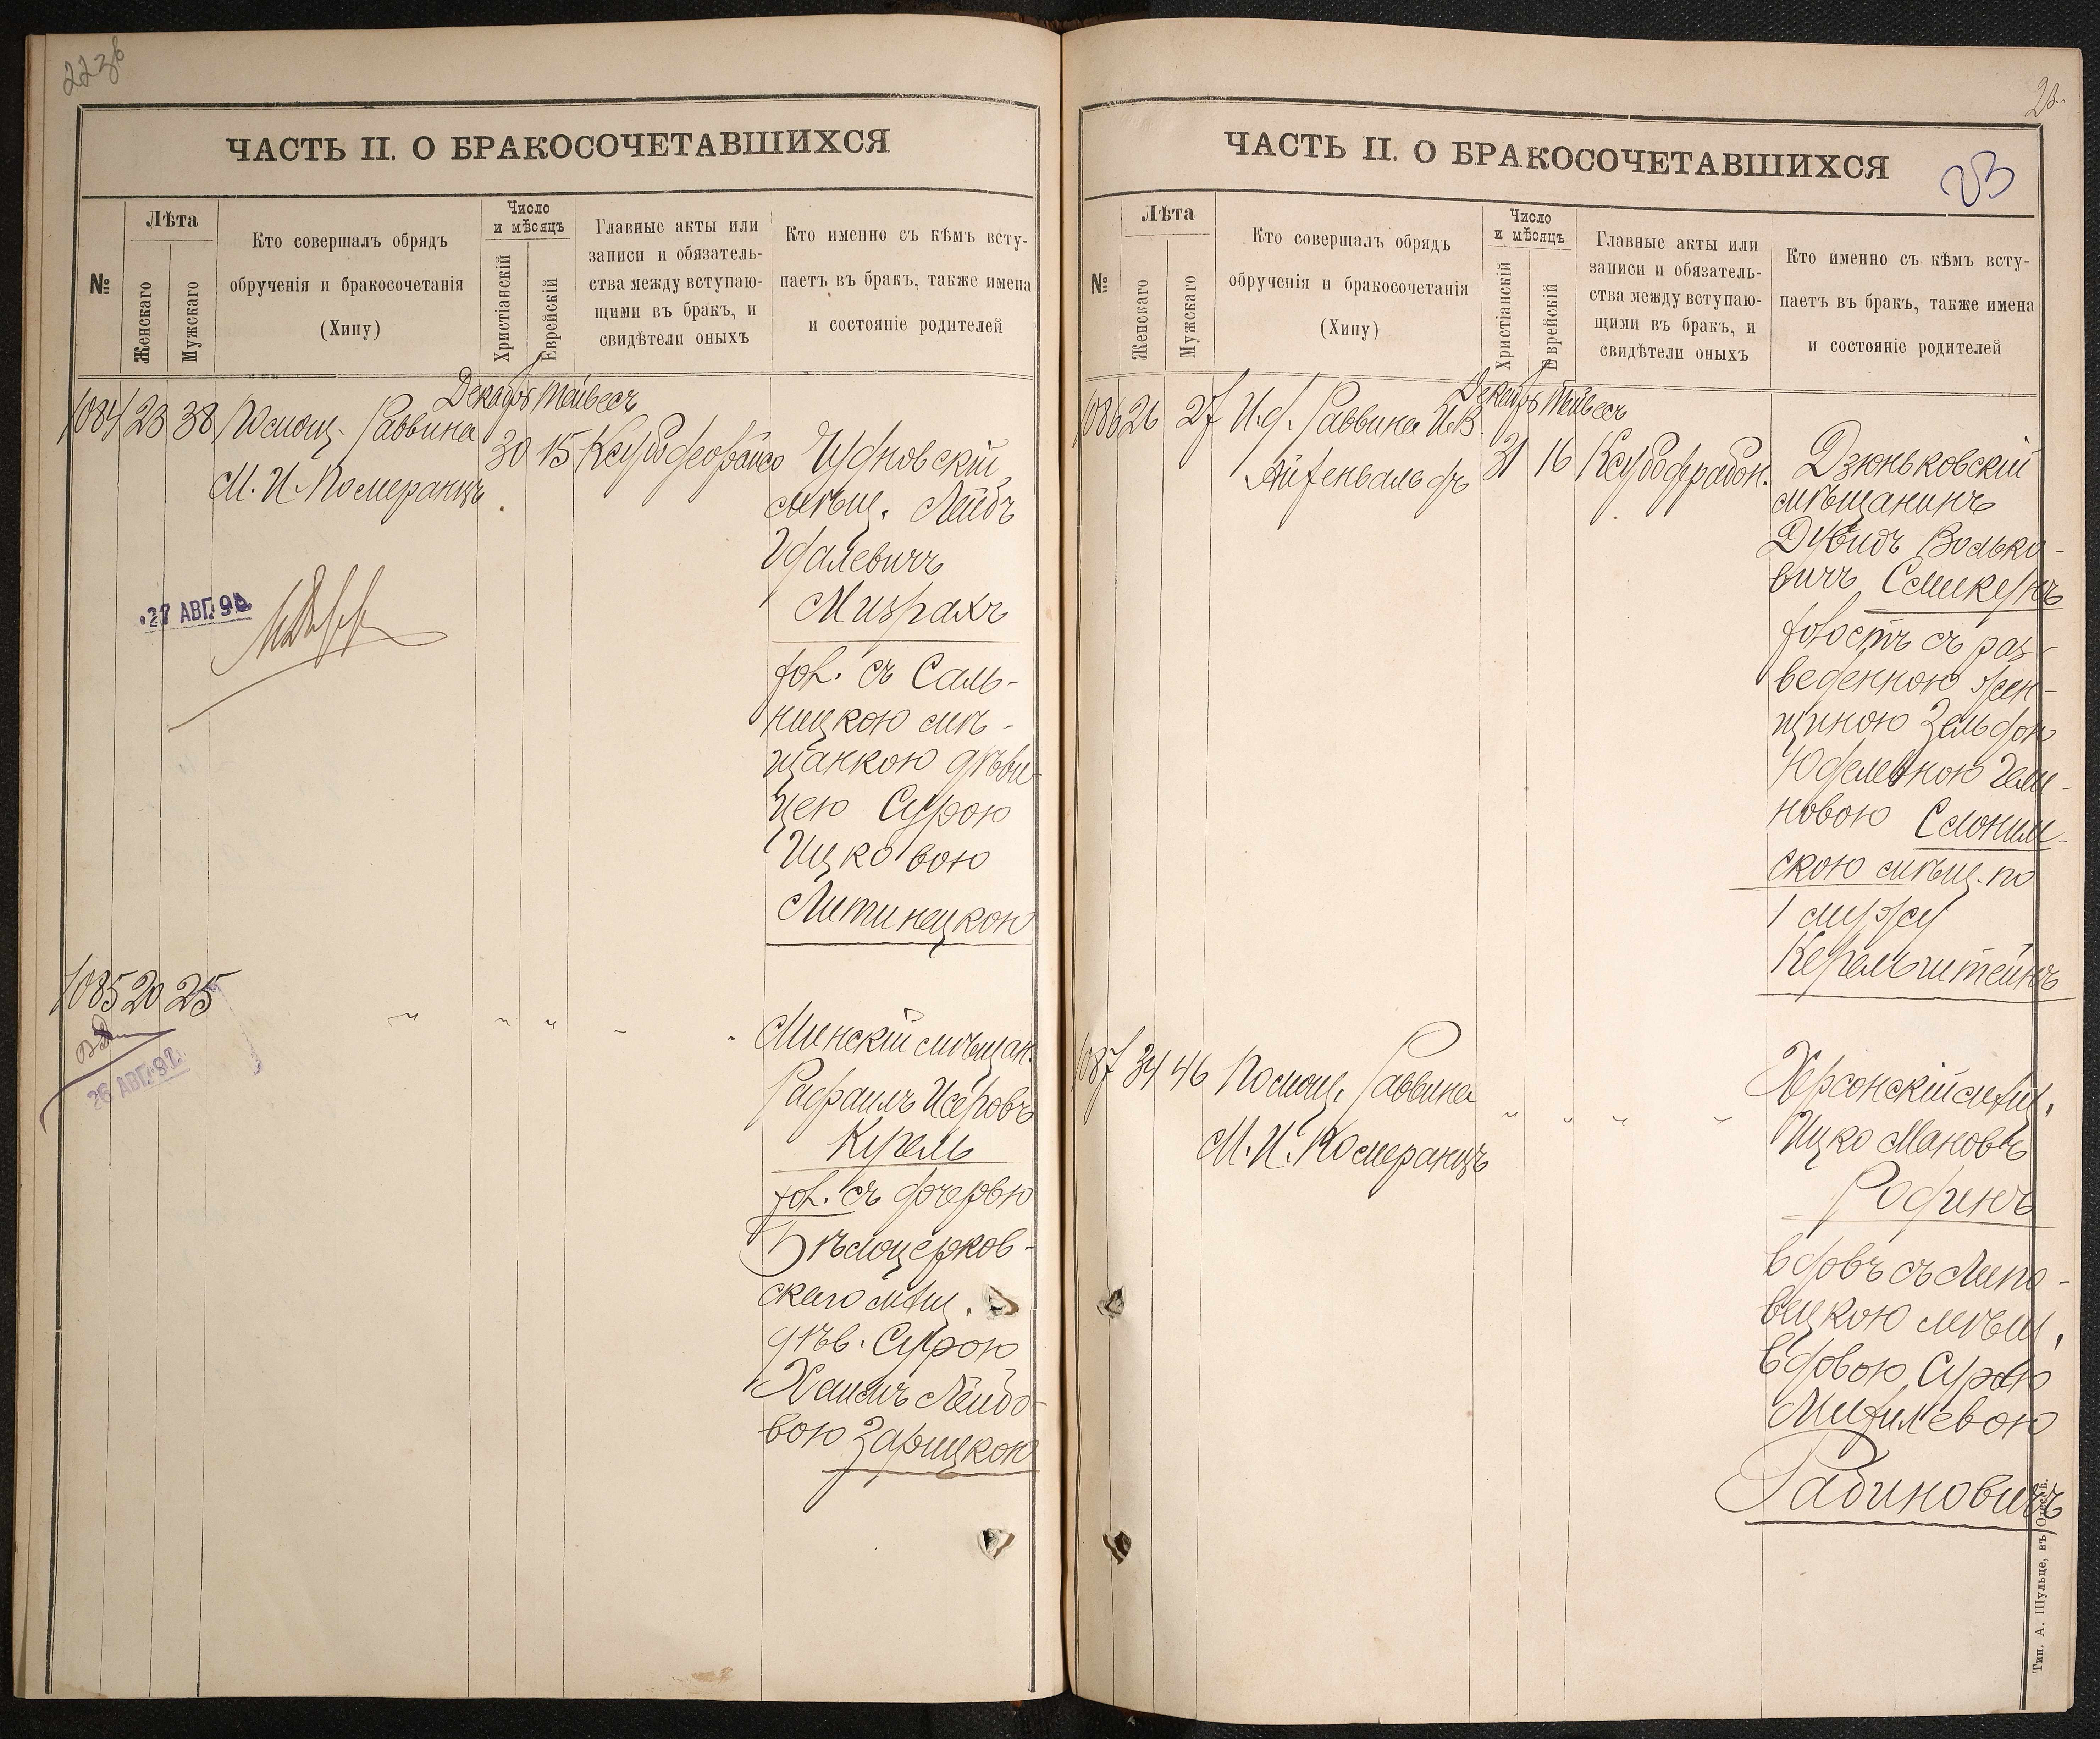 ЧАСТЬ II. О БРАКОСОЧЕТАВШИХСЯ
№
Лѣта
Женскаго
Мужскаго
Кто совершалъ обрядъ
обрученія и бракосочетанія
(Хипу)
Число
и мѣсяцъ
Христіанскій
Еврейскій
Главные акты или
записи и обязатель-
ства между вступаю-
щими въ бракъ, и
свидѣтели оныхъ
Кто именно съ кѣмъ всту-
паетъ въ бракъ, также имена
и состояніе родителей
Декабрь Тейвесъ
1084 23 38 Помощ. Раввина 30 15
М. И. Померанцъ
Чудновскій
мѣщ. Лейбъ
Удалевичъ
Мизрахъ
хол. съ Саль-
ницкою мѣ-
щанкою дѣви-
цею Сурою
Ицковою
Литинецкою
27 АВГ. 98
1085 20 25 " " " " "
26 АВГ.
Минскій мѣщан.
Рафаилъ Исеровъ
Курель
хол. съ дочерью
Бѣлоцерков-
скаго мѣщ.
дѣв. Сурою
Хаимъ Лейбо-
вою Зарицкою
ЧАСТЬ II. О БРАКОСОЧЕТАВШИХСЯ
23
№
Лѣта
Женскаго
Мужскаго
Кто совершалъ обрядъ
обрученія и бракосочетанія
(Хипу)
Число
и мѣсяцъ
Христіанскій
Еврейскій
Главные акты или
записи и обязатель-
ства между вступаю-
щими въ бракъ, и
свидѣтели оныхъ
Кто именно съ кѣмъ всту-
паетъ въ бракъ, также имена
и состояніе родителей
Декабрь Тейвесъ
1086 26 27 И.д. Раввина И.В. 31 16
Айзенвальдъ
Дзюньковскій
мѣщанинъ
Дувидъ Волько-
вичъ
холостъ съ раз-
веденною жен-
щиною Зельдою
Юделевною Гели-
новою Слоним-
скою мѣщ. по
1 мужу
Керельштейнъ
1087 34 46 Помощ. Раввина " " " "
М. И. Померанцъ
Херсонскій мѣщ.
Ицко Мановъ
Родинъ
вдовъ съ Липо-
вецкою мѣщ.
вдовою Сурою
Рабиновичъ
Тип. А. Шульце, въ Одессѣ.